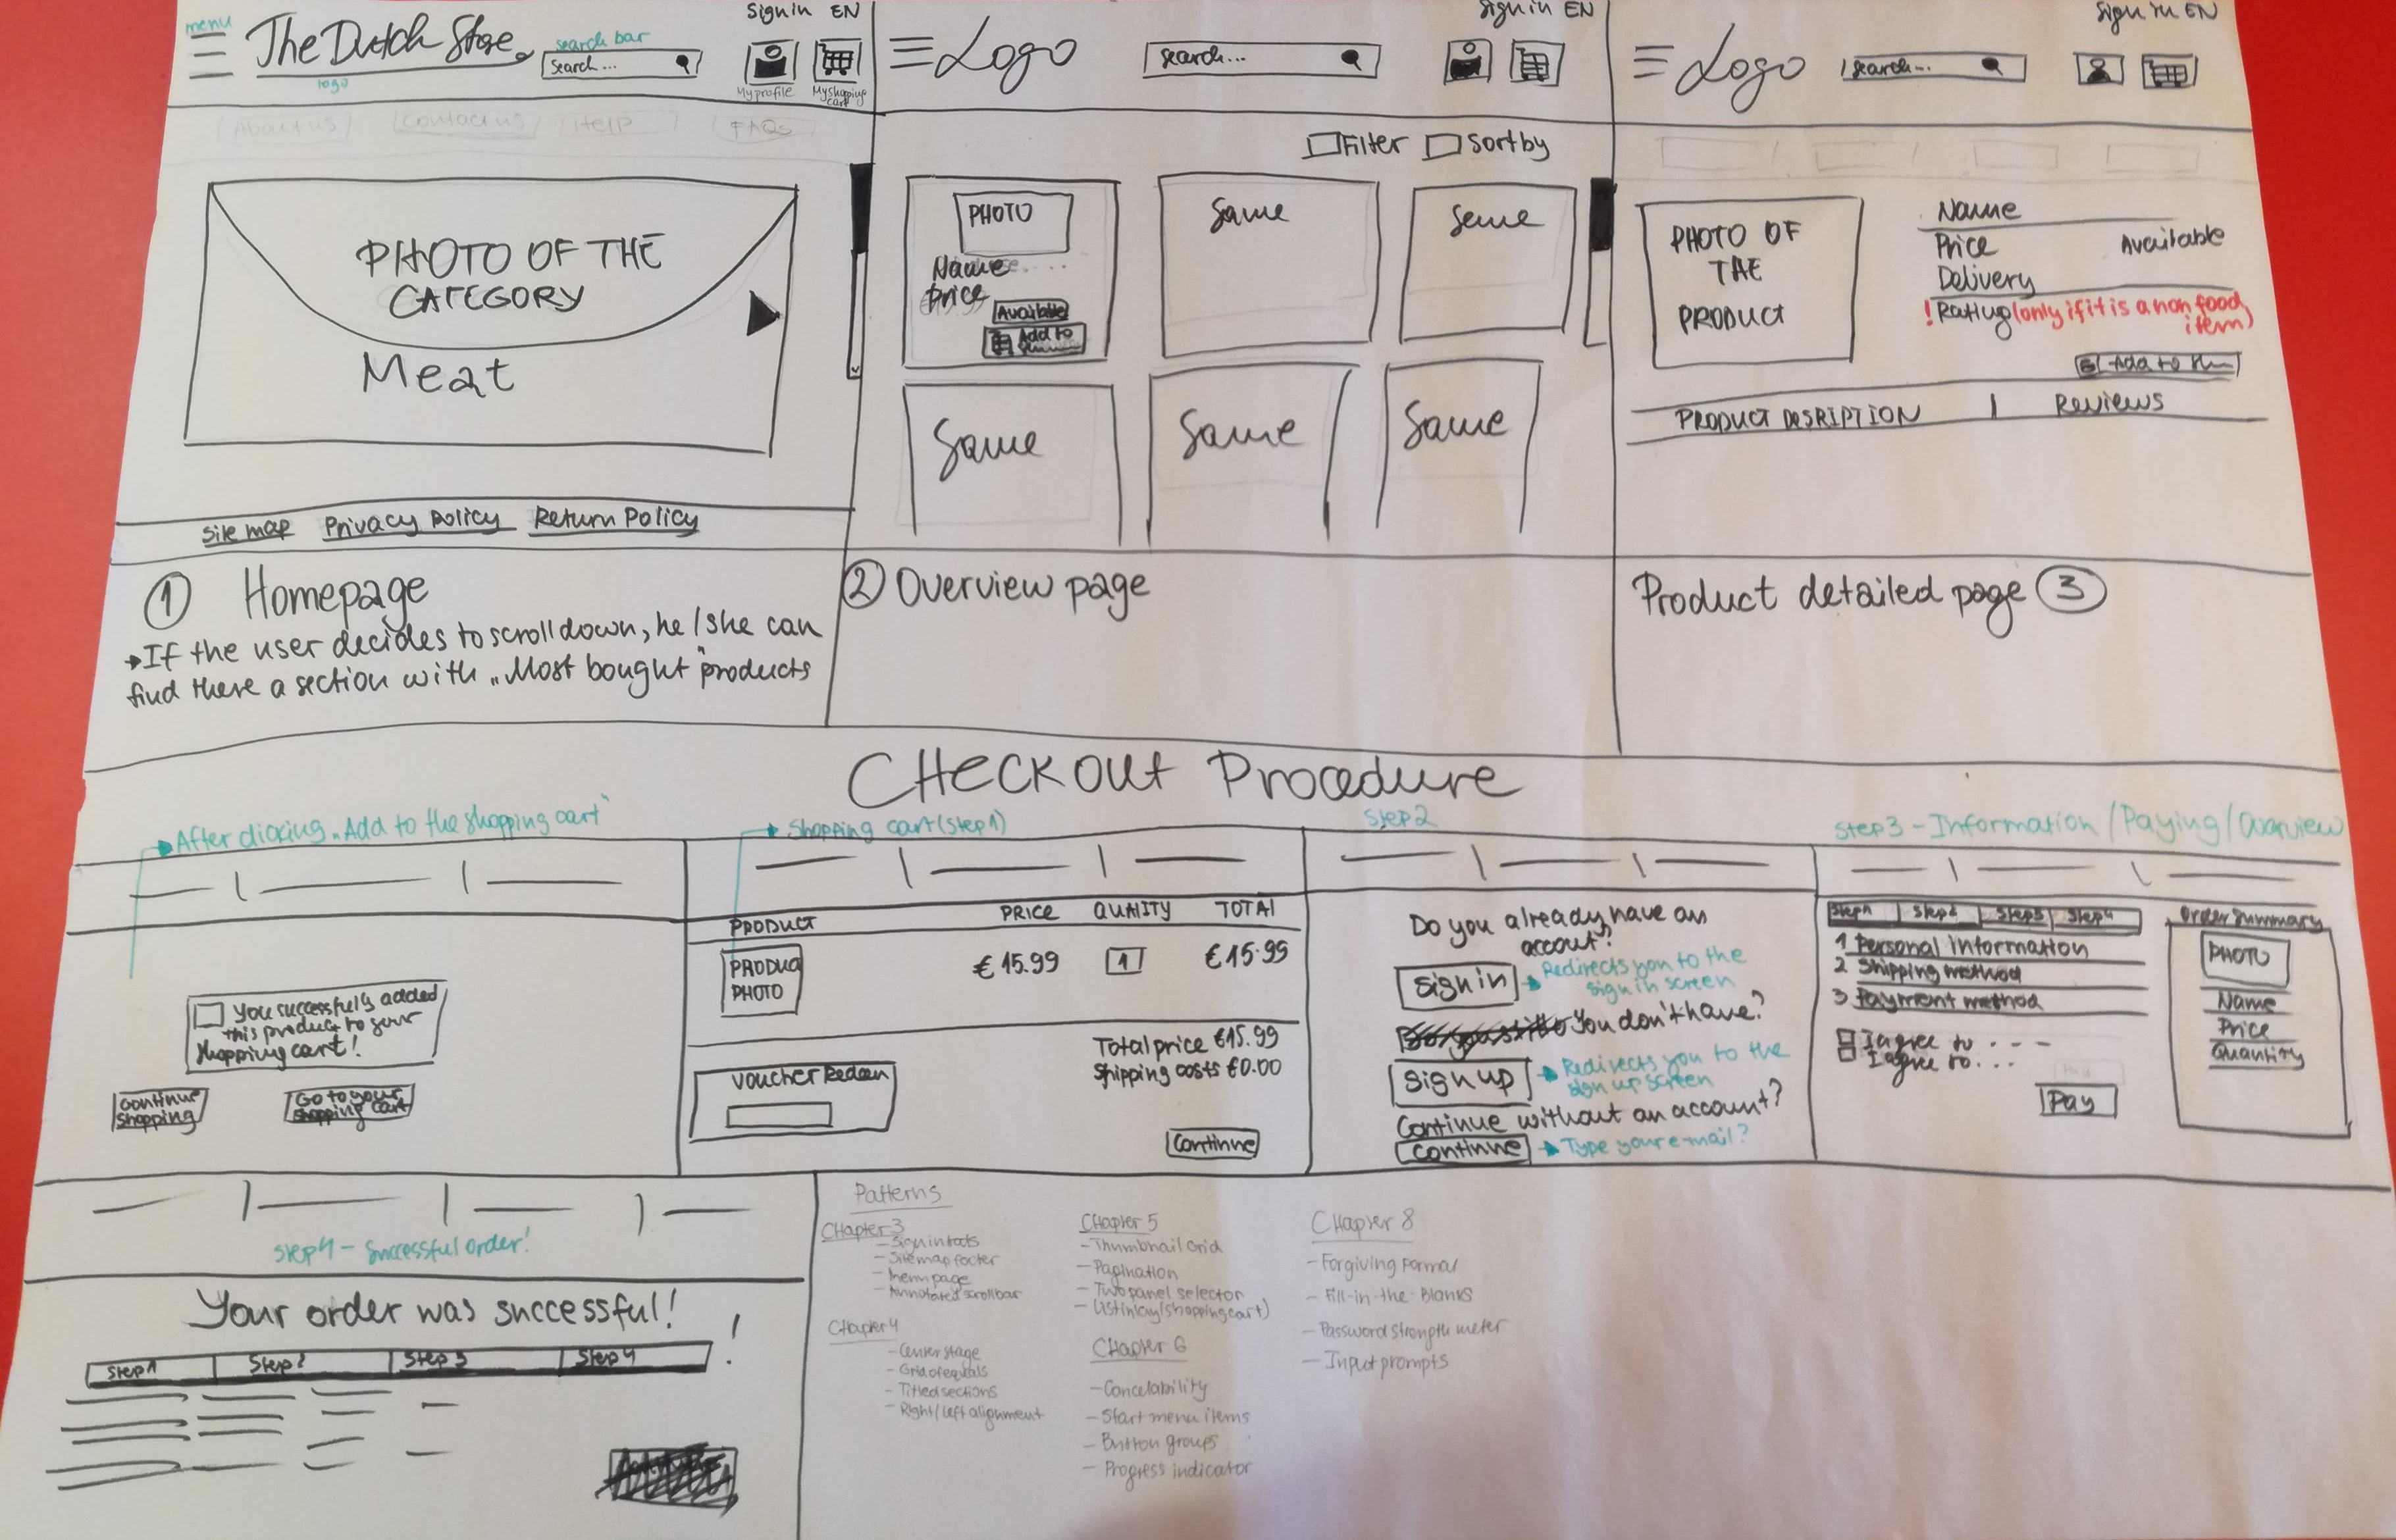 menu
The Dutch Store
logo
search bar
Search...
Sign in EN
My profile
My shopping cart
About us
Contact us
Help
FAQs
PHOTO OF THE
CATEGORY
Meat
Site map Privacy Policy Return Policy
1 Homepage
If the user decides to scroll down, he/she can
find there a section with „Most bought" products
Sign in EN
Logo
Search...
Filter Sort by
PHOTO
Name
Price
Available
Add to
Same
Same
Same
Same
Same
2 Overview page
Sign in EN
Logo
Search...
PHOTO OF
THE
PRODUCT
Name
Price Available
Delivery
! Rating (only if it is a non food
item)
Add to
PRODUCT DESRIPTION | Reviews
Product detailed page 3
CHECKOUT Procedure
After clicking „Add to the shopping cart"
You successfully added
this product to your
shopping cart!
Continue
shopping
Go to your
shopping cart
Shopping cart (Step 1)
PRODUCT PRICE QUANITY TOTAL
PRODUCT
PHOTO
€ 15.99 1 €15.99
Total price €15.99
Shipping costs €0.00
Voucher Redeem
Continue
Step 2
Do you already have an
accout?
Sign in
Redirects you to the
sign in screen
You don't have?
Sign up
Redirects you to the
sign up screen
Continue without an account?
Continue
Type your e-mail?
Step 3 - Information / Paying / Overview
Step 1 Step 2 Step 3 Step 4
1 Personal information
2 Shipping method
3 Payment method
I agree to ...
I agree to...
Pay
Order summary
PHOTO
Name
Price
Quantity
Step 4 - Successful order!
Your order was successful!
Step 1 Step 2 Step 3 Step 4
!
Patterns
CHapter 3
- Sign in tools
- Sitemap footer
- Menu page
- Annotated scrollbar
CHapter 4
- Center stage
- Grid of equals
- Titled sections
- Right/Left alignment
CHapter 5
- Thumbnail Grid
- Pagination
- Two panel selector
- List inlay (shopping cart)
CHapter 6
- Cancelability
- Start menu items
- Button groups
- Progress indicator
CHapter 8
- Forgiving Format
- Fill-in-the-Blanks
- Password strength meter
- Input prompts